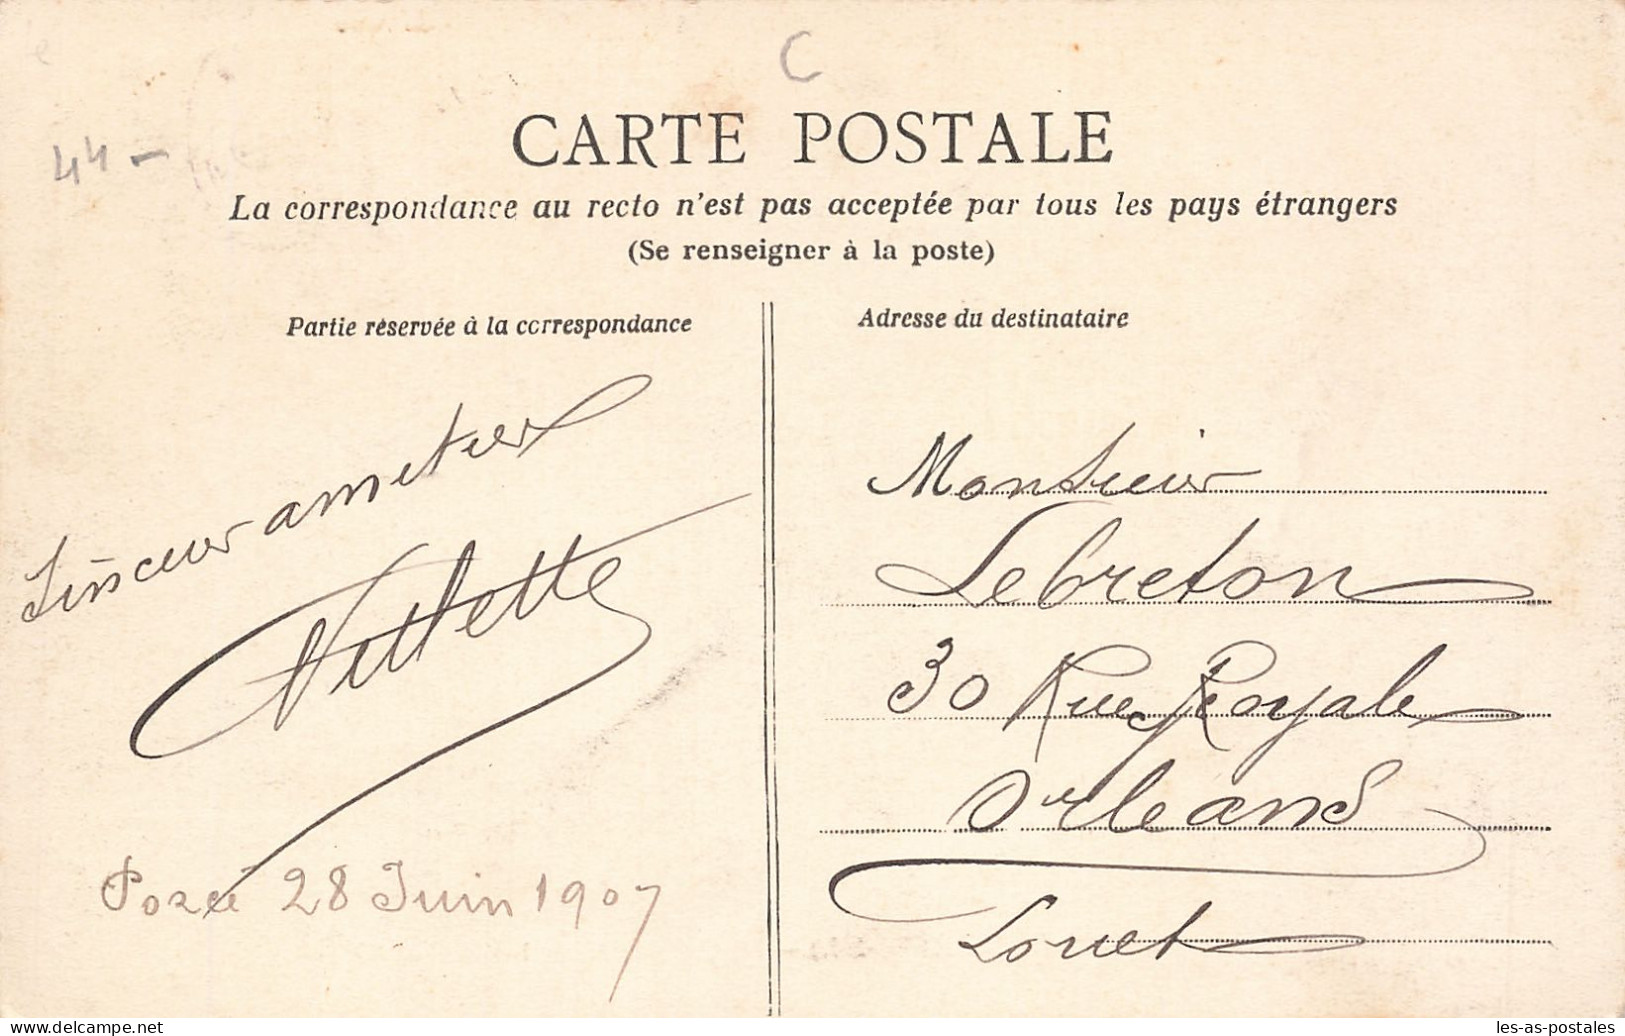 C
44 -
CARTE POSTALE
La correspondance au recto n'est pas acceptée par tous les pays étrangers
(Se renseigner à la poste)
Partie réservée à la correspondance
Adresse du destinataire
Sinceur amitier
28 Juin 1907
Monsieur
Lebreton
30 Rue Royale
Orleans
Loiret
Delcampe.net
les-as-postales